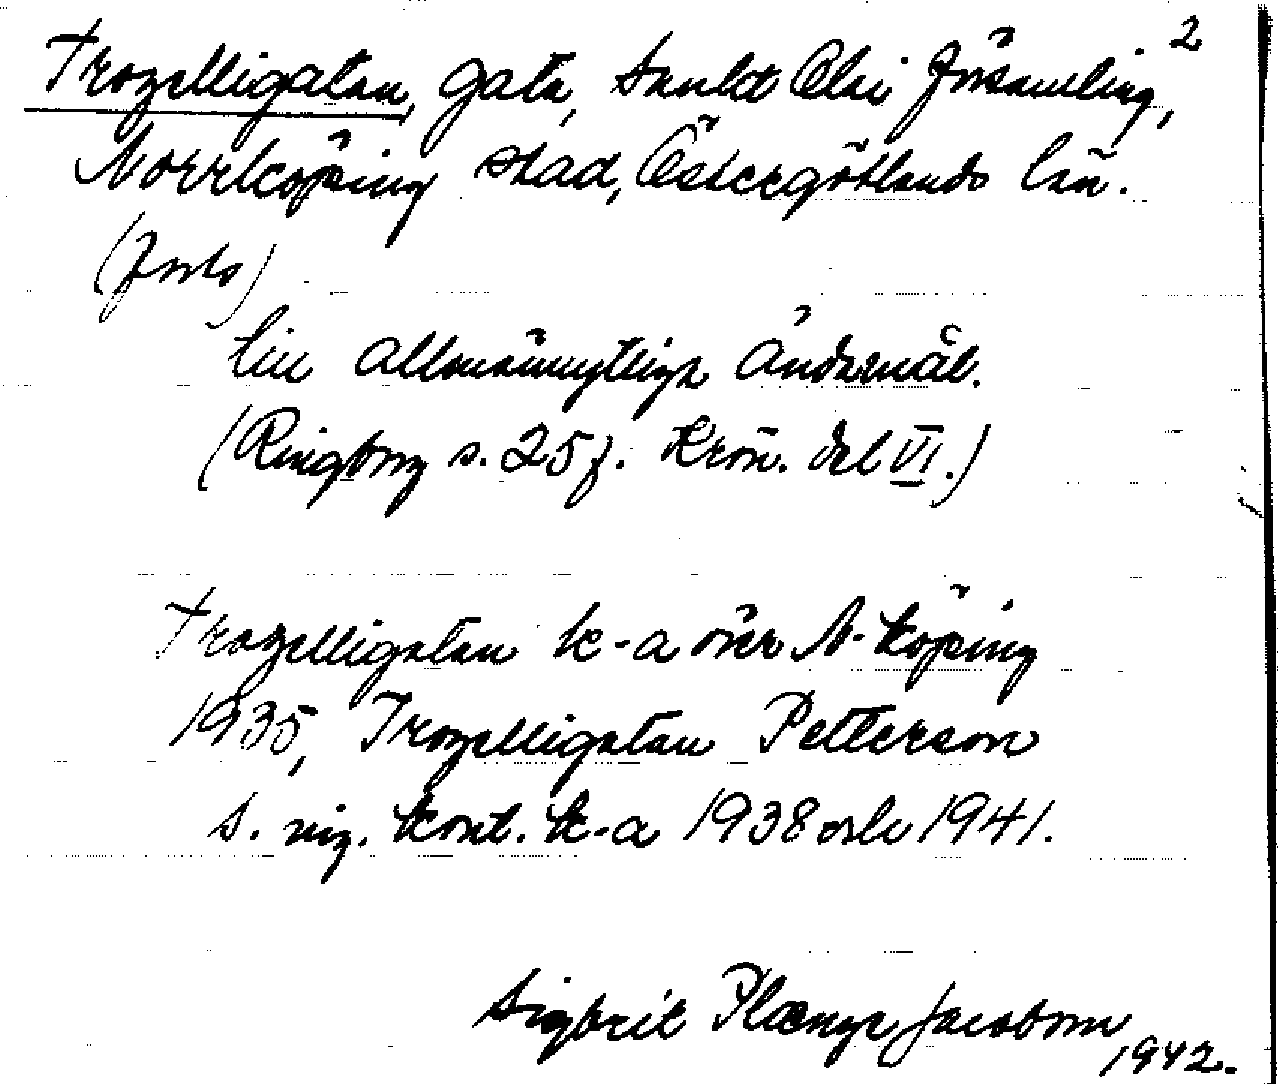 2
Trozelligatan, gata, Sankt Olai församling,
Norrköping stad, Östergötlands län.
(forts)
till allmännyttiga ändamål.
(Ringborg s. 25 f. Krön. del VI.)
Trozelligatan k-a över N-köping
1935, Trozelligatan Petterson
s. reg. kont. k-a 1938 och 1941.
Sigbrit Plænge Jacobson
1942.